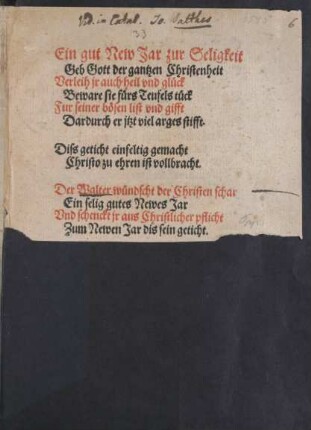 Vid. in Catal. Jo. Walther
23
6
Ein gut New Jar zur Seligkeit
Geb Gott der gantzen Christenheit
Verleih jr auch heil vnd glück
Beware sie fürs Teufels tück
Fur seiner bösen list vnd gifft
Dardurch er jtzt viel arges stifft.
Diss geticht einfeltig gemacht
Christo zu ehren ist vollbracht.
Der Walter wündscht der Christen schar
Ein selig gutes Newes Jar
Vnd schenckt jr aus Christlicher pflicht
Zum Newen Jar dis sein geticht.